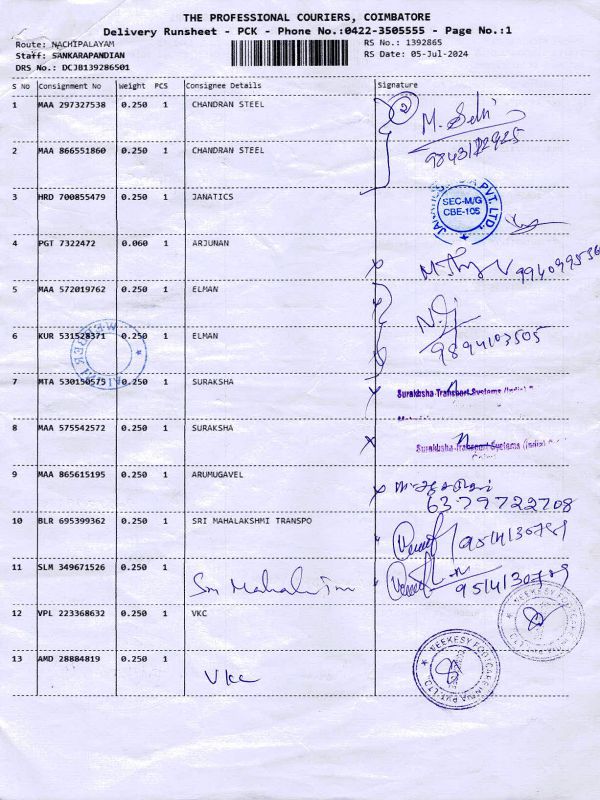 THE PROFESSIONAL COURIERS, COIMBATORE
Delivery Runsheet - PCK - Phone No.:0422-3505555 - Page No.:1
Route: NACHIPALAYAM
RS No.: 1392865
Staff: SANKARAPANDIAN
RS Date: 05-Jul-2024
DRS No.: DCJB139286501
S No Consignment No Weight PCS Consignee Details Signature
1 MAA 297327538 0.250 1 CHANDRAN STEEL 2
M. Selvi
2 MAA 866551860 0.250 1 CHANDRAN STEEL
3 HRD 700855479 0.250 1 JANATICS
PVT. LTD.
SEC-M/G
CBE-105
4 PGT 7322472 0.060 1 ARJUNAN
5 MAA 572019762 0.250 1 ELMAN
6 KUR 531528371 0.250 1 ELMAN
9894103505
7 MTA 530150575 0.250 1 SURAKSHA
Suraksha Transport Systems (India)
8 MAA 575542572 0.250 1 SURAKSHA
Suraksha Transport Systems (India)
9 MAA 865615195 0.250 1 ARUMUGAVEL
6379722708
10 BLR 695399362 0.250 1 SRI MAHALAKSHMI TRANSPO
11 SLM 349671526 0.250 1
Sri Mahalaxmi
12 VPL 223368632 0.250 1 VKC
13 AMD 28884819 0.250 1
Vkc